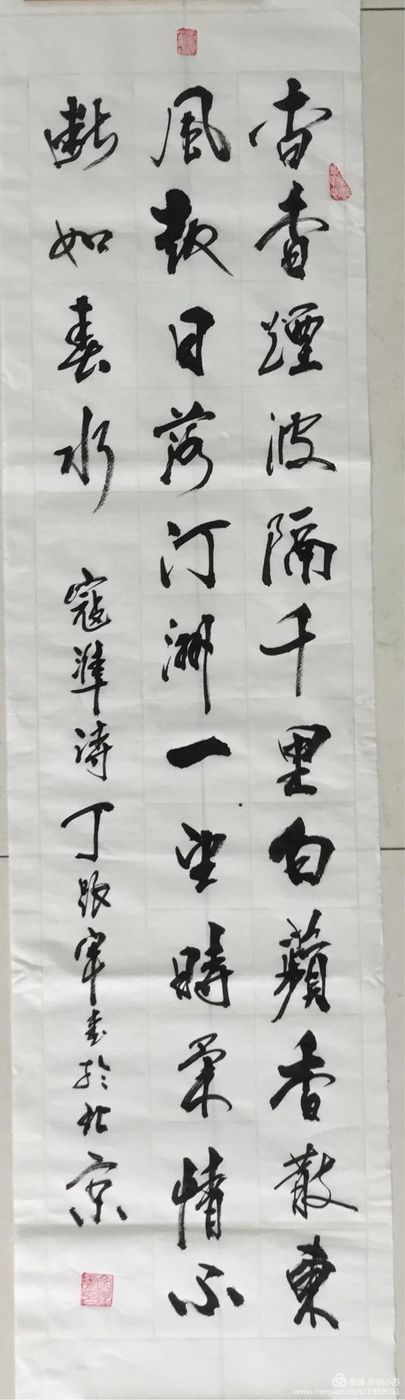 杳杳煙波隔千里白蘋香散東
風起日落汀洲一望時柔情不
斷如春水 寇準詩 丁軍書於北京
美篇